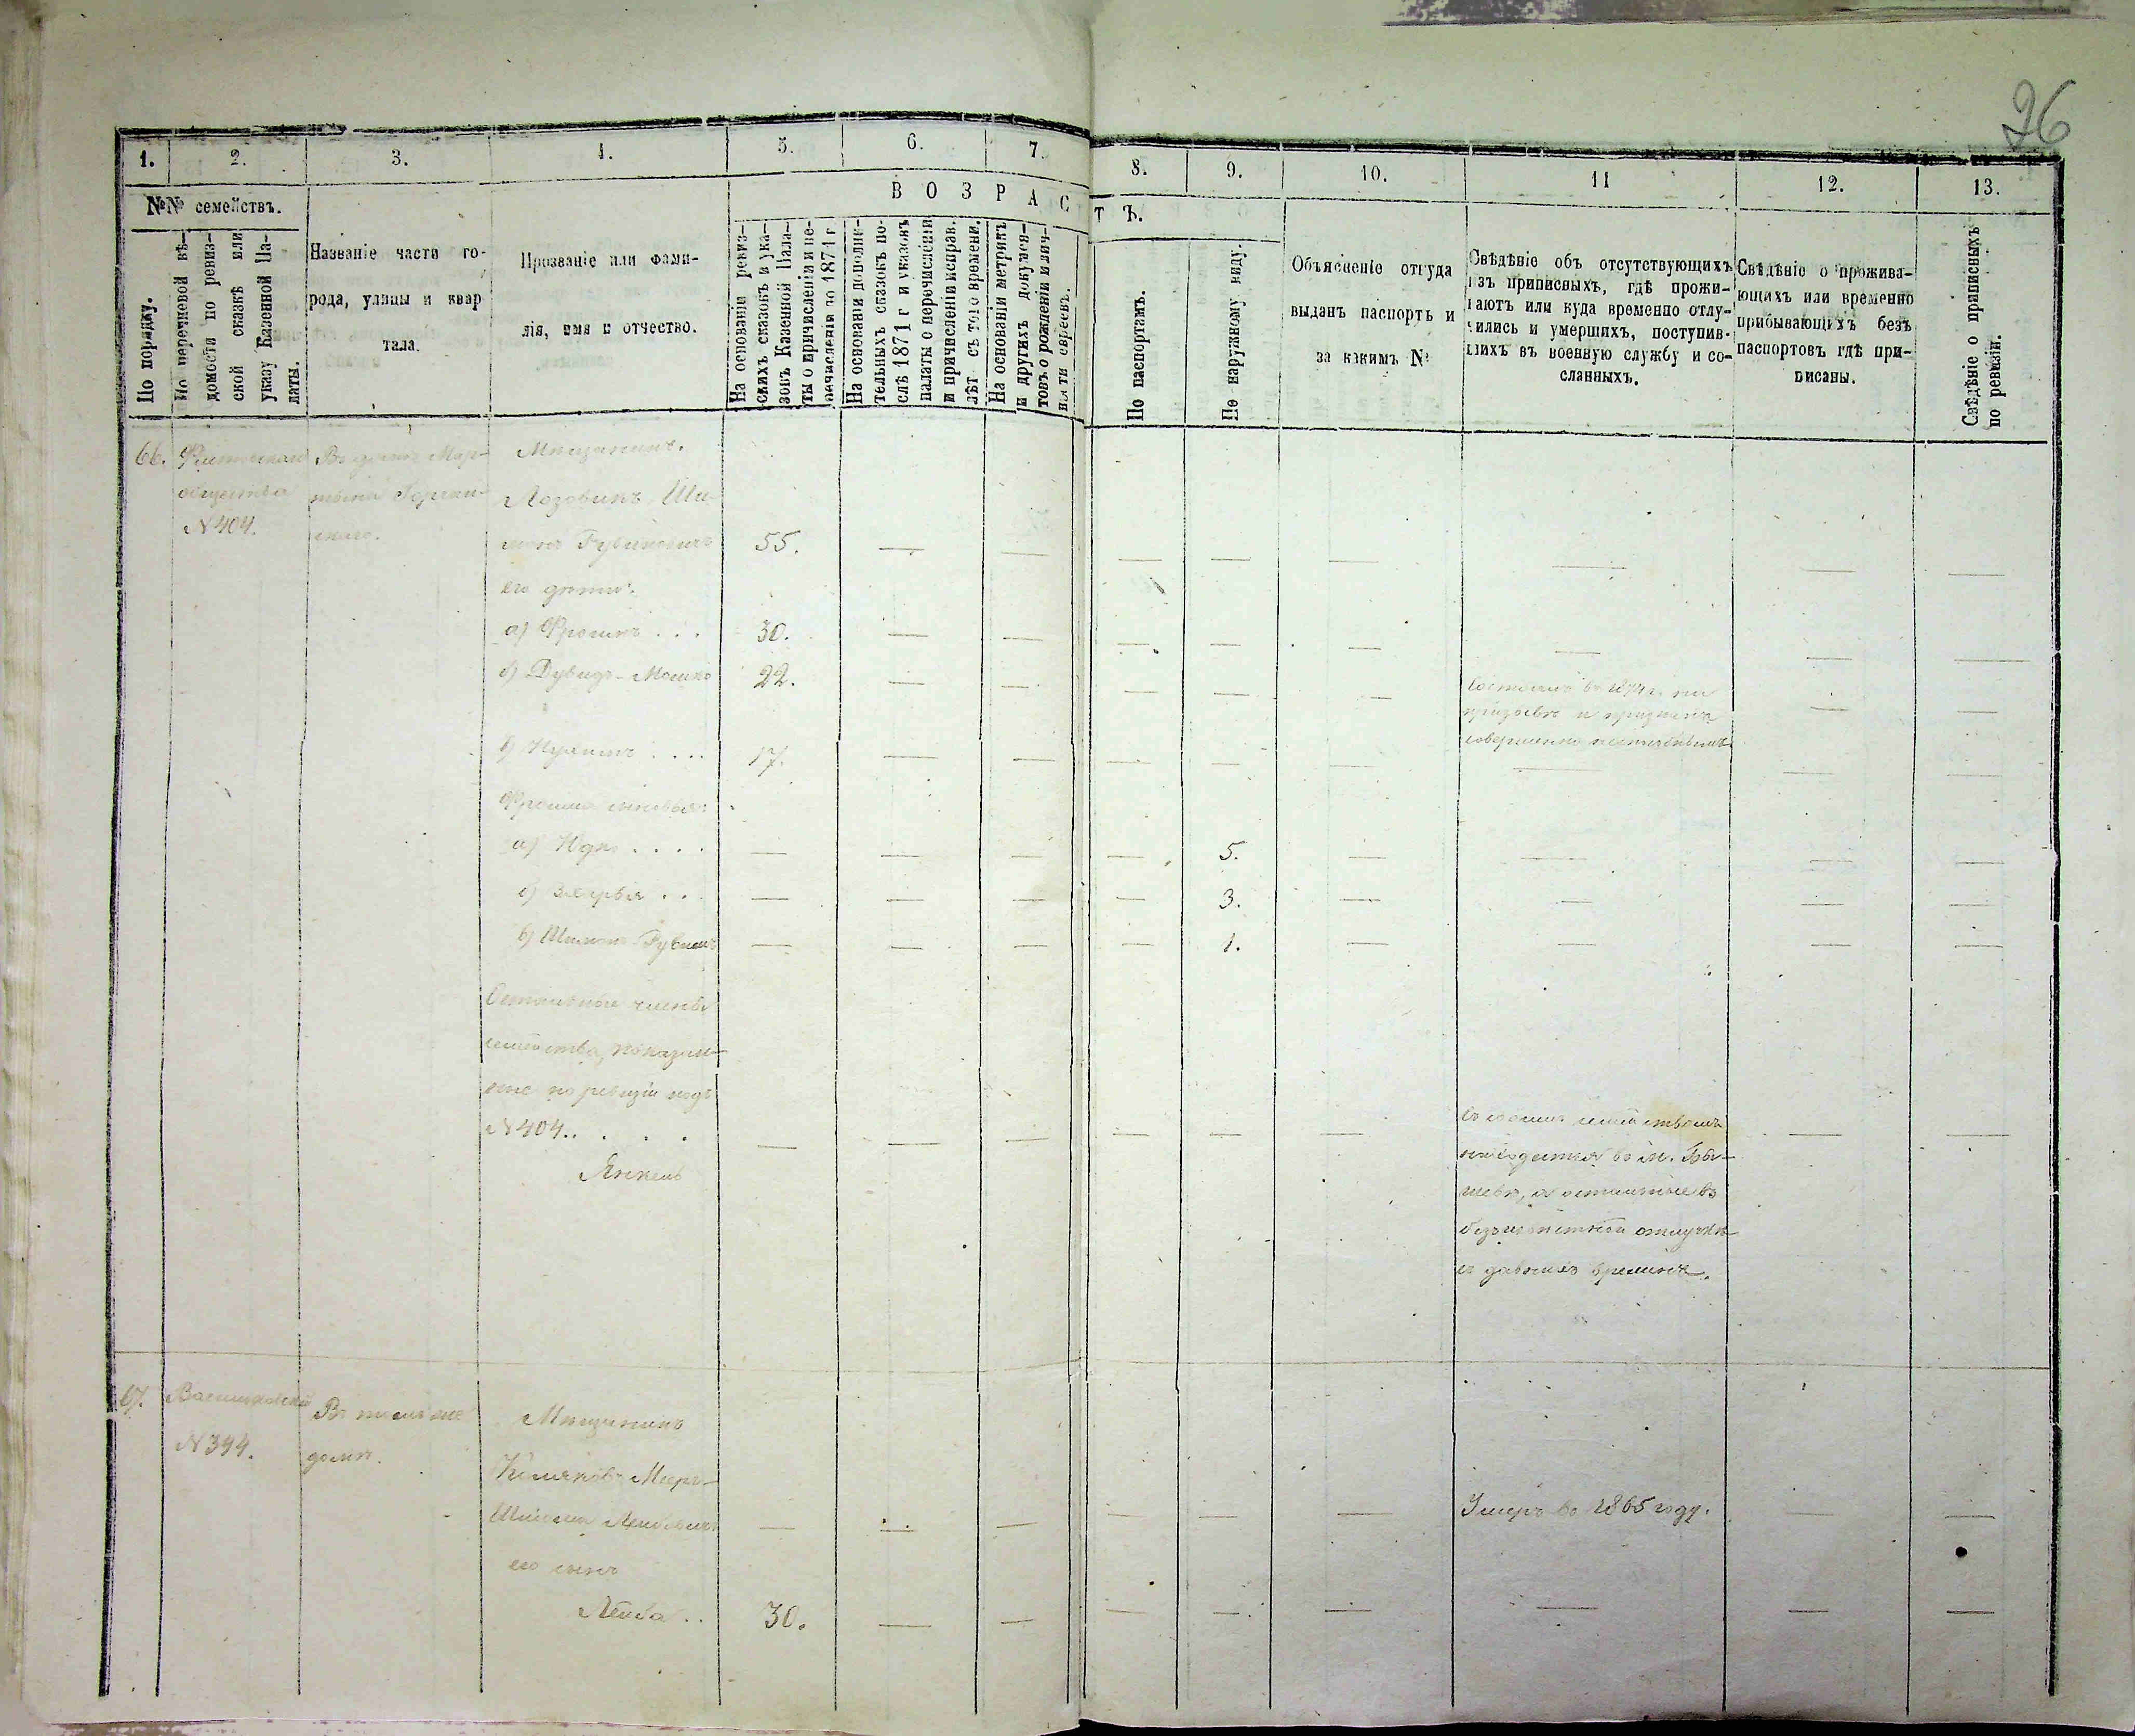 26
1. 2. 3. 4. 5. 6. 7. 8. 9. 10. 11 12. 13.
№№ семействъ.
ВОЗРАСТЪ.
По порядку.
По перечневой вѣ-
домости по ревиз-
ской сказкѣ или
указу Казенной Па-
латы.
Названіе части го-
рода, улицы и квар
тала.
Прозваніе или фами-
лія, имя и отчество.
На основаніи ревиз-
скихъ сказокъ и ука-
зовъ Казенной Пала-
ты о причисленіи и пе-
речисленіи до 1871 г
На основаніи дополни-
тельныхъ сказокъ по-
слѣ 1871 г и указовъ
палаты о перечисленіи
и причисленіи исправ.
лѣт съ того времени.
На основаніи метрикъ
и другихъ докумен-
товъ о рожденіи и лич-
ности евреевъ.
По паспортамъ.
По наружному виду.
Объясненіе откуда
выданъ паспортъ и
за какимъ №
Свѣдѣніе объ отсутствующихъ
изъ приписныхъ, гдѣ прожи-
ваютъ или куда временно отлу-
чились и умершихъ, поступив-
шихъ въ военную службу и со-
сланныхъ.
Свѣдѣніе о прожива-
ющихъ или временно
прибывающихъ безъ
паспортовъ гдѣ при-
писаны.
Свѣдѣніе о приписныхъ
по ревизіи.
66.
общества
N 404.
Въ домѣ Мар-
Мѣщанинъ.
Лозовикъ Ши-
монъ Рувиновичъ 55.
его дѣти:
а) Фроимъ . . . 30.
б) Дувидъ-Мошко 22.
Состоялъ въ 1874 г. на
призывѣ и признанъ
совершенно неспособнымъ
в) Нухимъ . . . . 17.
Фроима сыновья:
а) Юдко . . . . 5.
б) Зхарья . . . 3.
в) Шимонъ Рувинъ 1.
Остальные члены
семейства, показан-
ные по ревизіи подъ
N 404. . . . .
Янкель
Съ своимъ семействомъ
находится въ м. Бы-
шевѣ, а остальные въ
безъизвѣстной отлучкѣ
съ давнихъ временъ.
67.
Васильковскаго
N 394.
Въ томъ же
домѣ.
Мѣщанинъ
Лейбовичъ
Умеръ въ 1865 году.
его сынъ
Лейба . . 30.